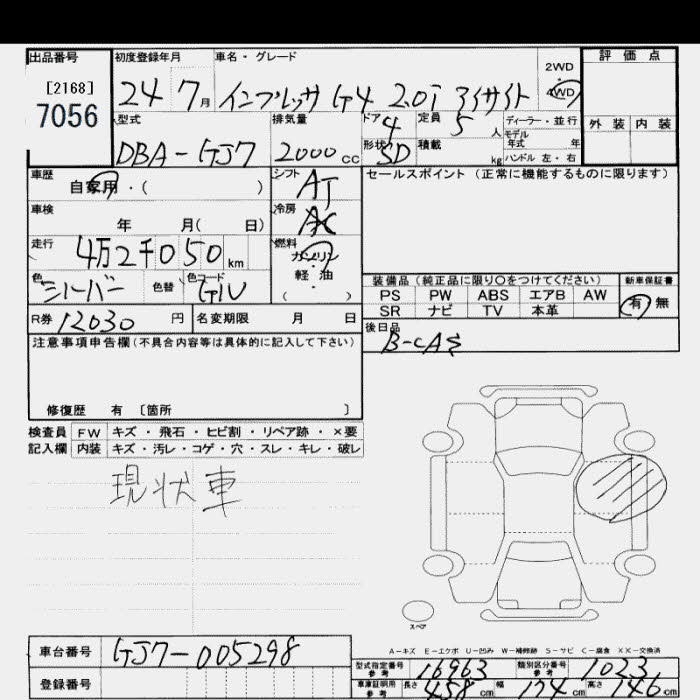 出品番号 初度登録年月 車名・グレード 2WD ・ 4WD 評価点
[2168]
7056
24 7月 インプレッサ G4 2.0i アイサイト
型式 排気量 ドア 4 定員 5人 ディーラー・並行 外装 内装
DBA-GJ7 2000cc 形状 SD 積載 kg モデル年式 年
ハンドル 左・右
車歴 自家用・( ) シフト AT セールスポイント (正常に機能するものに限ります)
車検 年 月( 日) 冷房 AC
走行 4万2千050km 燃料 ガソリン
軽・油
( )
色 シルバー 色替 色コード G1U
装備品 (純正品に限り〇をつけてください) 新車保証書
PS PW ABS エアB AW 有 無
SR ナビ TV 本革
R券 12030 円 名変期限 月 日 後日品
B-CAS
注意事項申告欄 (不具合内容等は具体的に記入して下さい)
修復歴 有 〔箇所 〕
検査員 FW キズ・飛石・ヒビ割・リペア跡・×要
記入欄 内装 キズ・汚レ・コゲ・穴・スレ・キレ・破レ
現状車
スペア
A-キズ E-エクボ U-凹み W-補修跡 S-サビ C-腐食 XX-交換済
車台番号 GJ7-005298
型式指定番号 参考 16963 類別区分番号 参考 1023
登録番号 車庫証明用 参考 長さ 458 cm 幅 174 cm 高さ 146 cm